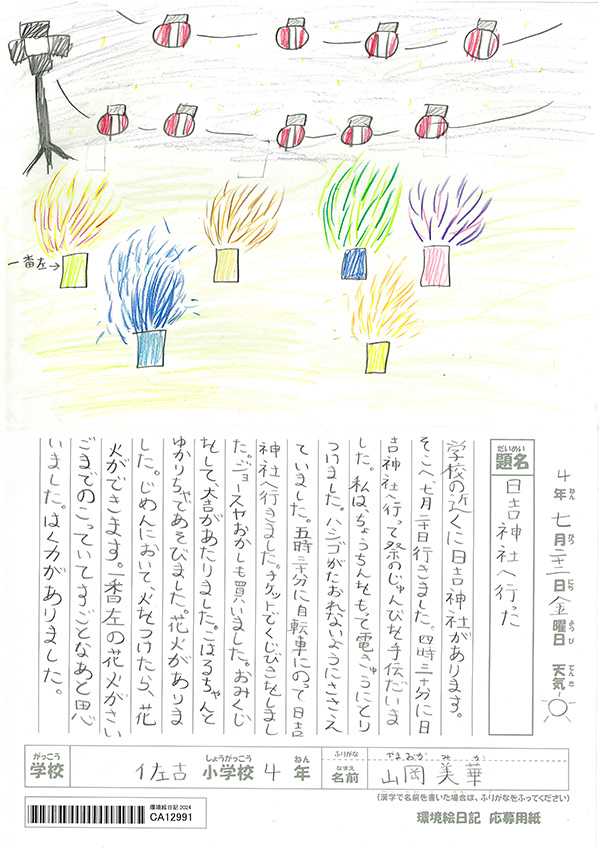 一番左→
4年 七月 日 金曜日 天気
ねん がつ にち ようび てんき
だいめい
題名 日吉神社へ行った
学校の近くに日吉神社があります。
そこへ、七月二十日行きました。四時三十分に日
吉神社へ行って祭のじゅんびを手伝だいま
した。私は、ちょうちんをもって電きゅうにとり
つけました。ハシゴがたおれないようにささえ
ていました。五時三十分に自転車にのって日吉
神社へ行きました。チケットでくじびきをしまし
た。ジュースやおかしも買いました。おみくじ
をして、大吉があたりました。こはるちゃんと
ゆかりちゃであそびました。花火がありま
した。じめんにおいて、火をつけたら、花
火ができます。一番左の花火がさい
ごまでのこっていてすごとなあと思
いました。はく力がありました。
がっこう しょうがっこう ねん ふりがな やまおか みか
学校 佐古 小学校 4 年 なまえ 名前 山岡 美華
(漢字で名前を書いた場合は、ふりがなをふってください)
環境絵日記 2024
CA12991
環境絵日記 応募用紙